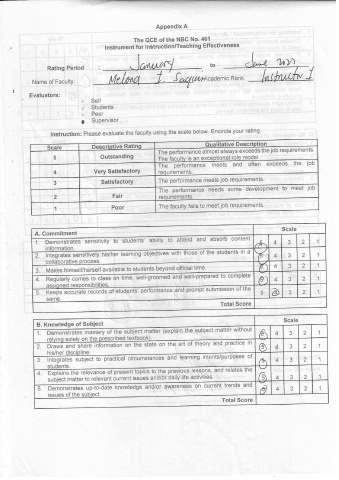 Appendix A
The QCE of the NBC No. 461
Instrument for Instruction/Teaching Effectiveness
Rating Period : January to June 2021
Name of Faculty: Academic Rank: Instructor 1
Evaluators:
Self
Students
Peer
Supervisor
Instruction: Please evaluate the faculty using the scale below. Encircle your rating.
Scale Descriptive Rating Qualitative Description
5 Outstanding The performance almost always exceeds the job requirements.
The faculty is an exceptional role model.
4 Very Satisfactory The performance meets and often exceeds the job
requirements.
3 Satisfactory The performance meets job requirements.
2 Fair The performance needs some development to meet job
requirements.
1 Poor The faculty fails to meet job requirements.
A. Commitment Scale
1. Demonstrates sensitivity to students' ability to attend and absorb content
information. 5 4 3 2 1
2. Integrates sensitively his/her learning objectives with those of the students in a
collaborative process. 5 4 3 2 1
3. Makes himself/herself available to students beyond official time. 5 4 3 2 1
4. Regularly comes to class on time, well-groomed and well-prepared to complete
assigned responsibilities. 5 4 3 2 1
5. Keeps accurate records of students' performance and prompt submission of the
same. 5 4 3 2 1
Total Score
B. Knowledge of Subject Scale
1. Demonstrates mastery of the subject matter (explain the subject matter without
relying solely on the prescribed textbook). 5 4 3 2 1
2. Draws and share information on the state on the art of theory and practice in
his/her discipline. 5 4 3 2 1
3. Integrates subject to practical circumstances and learning intents/purposes of
students. 5 4 3 2 1
4. Explains the relevance of present topics to the previous lessons, and relates the
subject matter to relevant current issues and/or daily life activities. 5 4 3 2 1
5. Demonstrates up-to-date knowledge and/or awareness on current trends and
issues of the subject. 5 4 3 2 1
Total Score